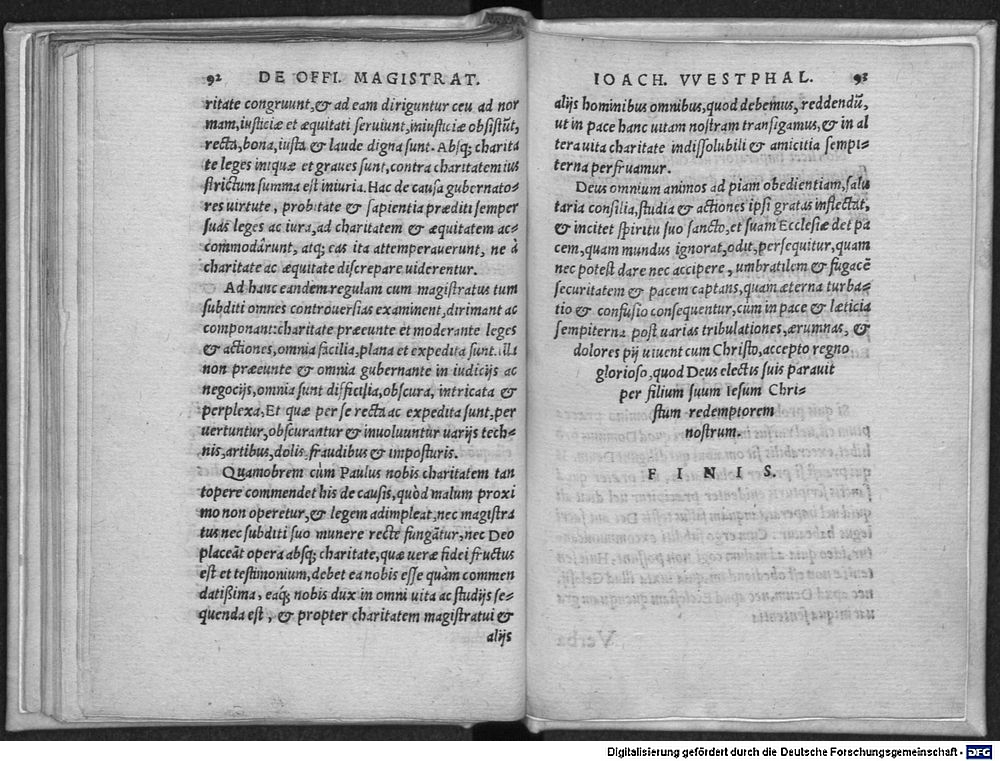 92 DE OFFI. MAGISTRAT.
ritate congruunt,& ad eam diriguntur ceu ad nor
mam,iusticiæ et æquitati seruiunt,iniusticiæ obsistũt,
recta,bona,iusta & laude digna sunt. Absq; charita
te leges iniquæ et graues sunt,contra charitatem ius
strictum summa est iniuria. Hac de causa gubernato-
res uirtute, probitate & sapientia præditi semper
suas leges ac iura,ad charitatem & æquitatem ac-
commodârunt, atq; eas ita attemperauerunt, ne à
charitate ac æquitate discrepare uiderentur.
Ad hanc eandem regulam cum magistratus tum
subditi omnes controuersias examinent,dirimant ac
componant:charitate præeunte et moderante leges
& actiones,omnia facilia,plana et expedita sunt.illa
non præeunte & omnia gubernante in iudicijs ac
negocijs,omnia sunt difficilia,obscura, intricata &
perplexa,Et quæ per se recta ac expedita sunt,per
uertuntur,obscurantur & inuoluuntur uarijs tech-
nis,artibus,dolis,fraudibus & imposturis.
Quamobrem cùm Paulus nobis charitatem tan
topere commendet his de causis,quòd malum proxi
mo non operetur,& legem adimpleat,nec magistra
tus nec subditi suo munere rectè fungãtur,nec Deo
placeãt opera absq; charitate,quæ ueræ fidei fructus
est et testimonium,debet ea nobis esse quàm commen
datißima, eaq; nobis dux in omni uita ac studijs se-
quenda est, & propter charitatem magistratui &
alijs
IOACH. VVESTPHAL. 93
alijs hominibus omnibus,quod debemus, reddendũ,
ut in pace hanc uitam nostram transigamus,& in al
tera uita charitate indissolubili & amicitia sempi-
terna perfruamur.
Deus omnium animos ad piam obedientiam,salu
taria consilia,studia & actiones ipsi gratas inflectat,
& incitet spiritu suo sancto,et suam Ecclesiæ det pa
cem,quam mundus ignorat,odit,persequitur,quam
nec potest dare nec accipere, umbratilem & fugacẽ
securitatem & pacem captans,quam æterna turba-
tio & confusio consequentur,cùm in pace & læticia
sempiterna post uarias tribulationes,ærumnas, &
dolores pij uiuent cum Christo,accepto regno
glorioso,quod Deus electis suis parauit
per filium suum Iesum Chri-
stum redemptorem
nostrum.
F I N I S.
Digitalisierung gefördert durch die Deutsche Forschungsgemeinschaft - DFG